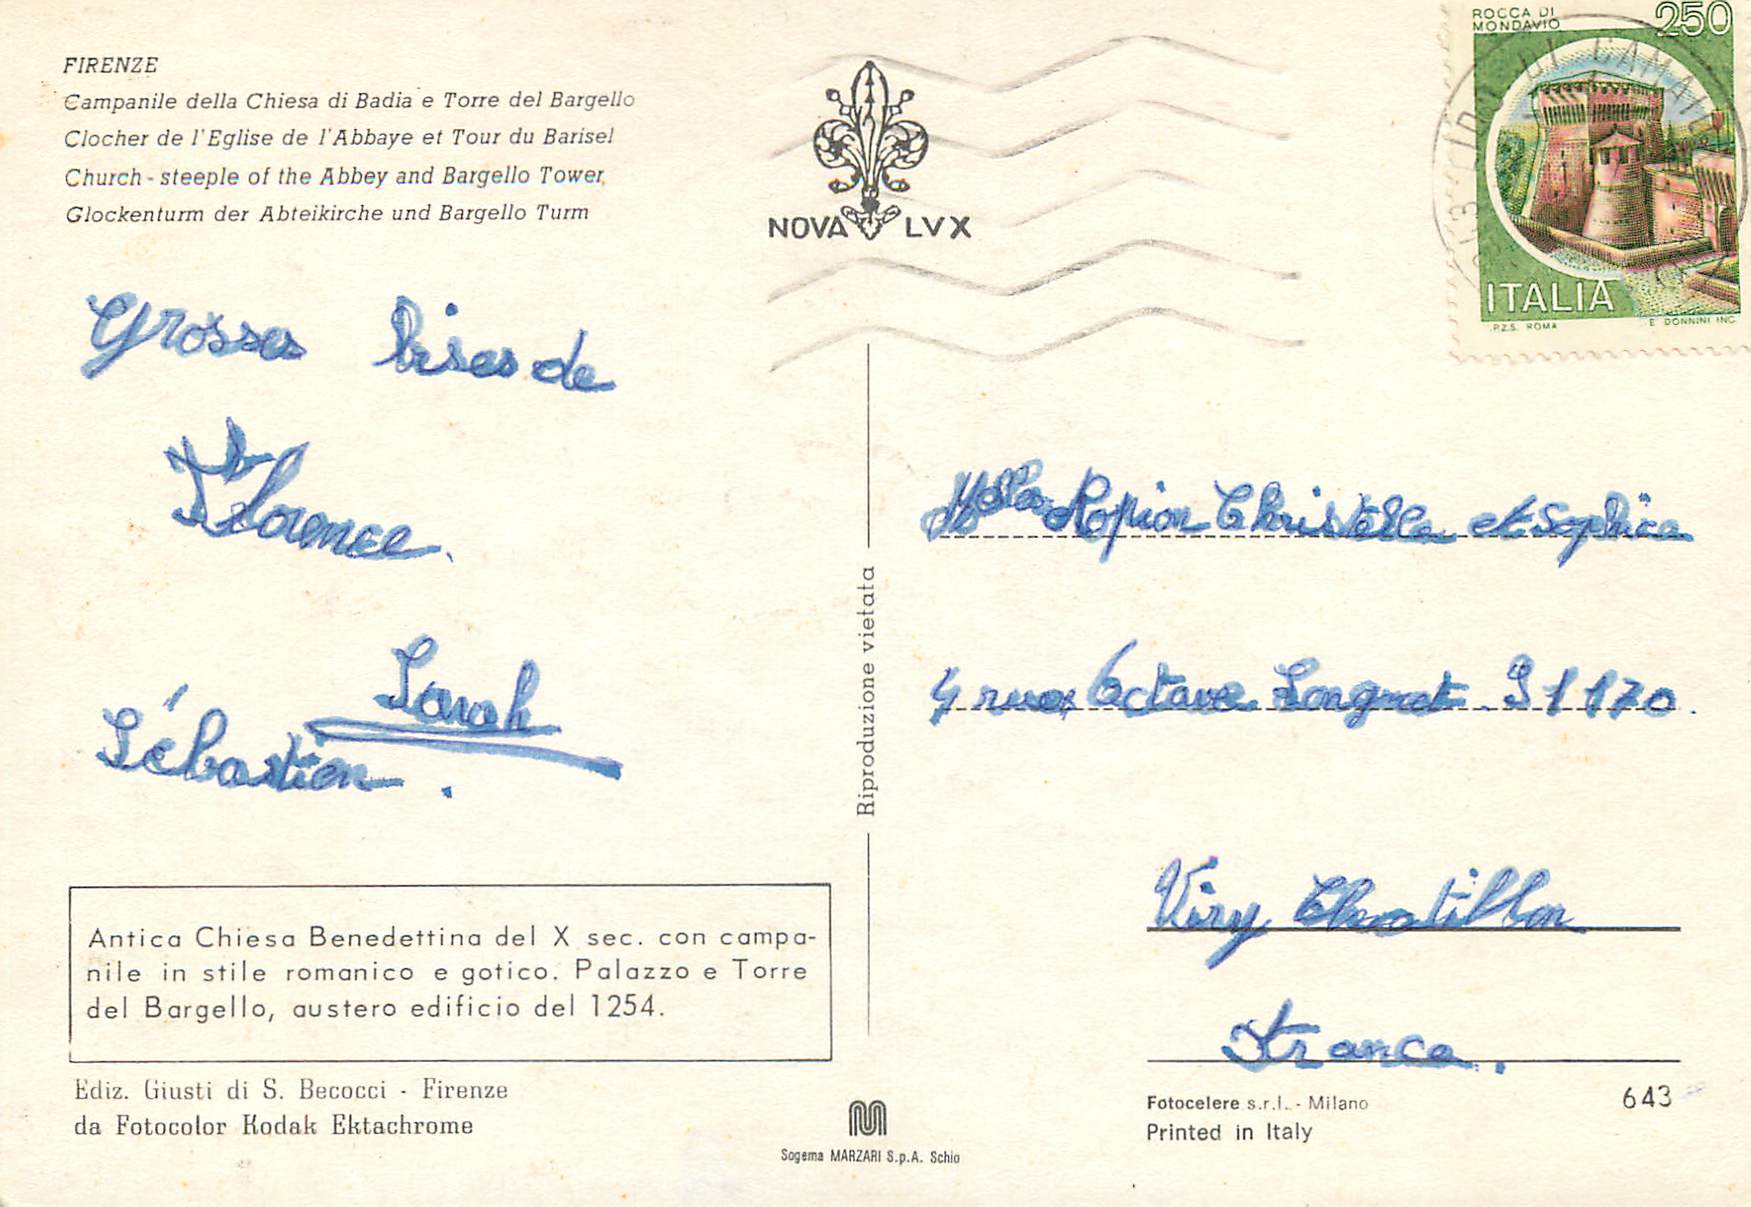 FIRENZE
Campanile della Chiesa di Badia e Torre del Bargello
Clocher de l'Eglise de l'Abbaye et Tour du Barisel
Church - steeple of the Abbey and Bargello Tower,
Glockenturm der Abteikirche und Bargello Turm
NOVA LVX
ROCCA DI
MONDAVIO
250
ITALIA
P.Z.S. ROMA
E. DONNINI INC.
Grosses bises de
Florence.
Sarah
Sébastien.
Riproduzione vietata
Melles Ropion Christelle et Sophie
4 rue Octave Longuet. 91170.
Viry Chatillon
France.
Antica Chiesa Benedettina del X sec. con campa-
nile in stile romanico e gotico. Palazzo e Torre
del Bargello, austero edificio del 1254.
Ediz. Giusti di S. Becocci - Firenze
da Fotocolor Kodak Ektachrome
Sogema MARZARI S.p.A. Schio
Fotocelere s.r.l. - Milano
Printed in Italy
643